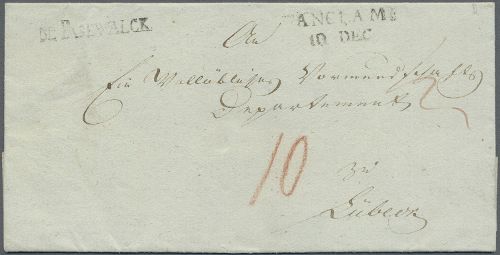 DE PASEWALCK
ANCLAM
10 DEC
An
Ein Wollöbliches Vormundschafts
Departement
10
zu
Lübeck